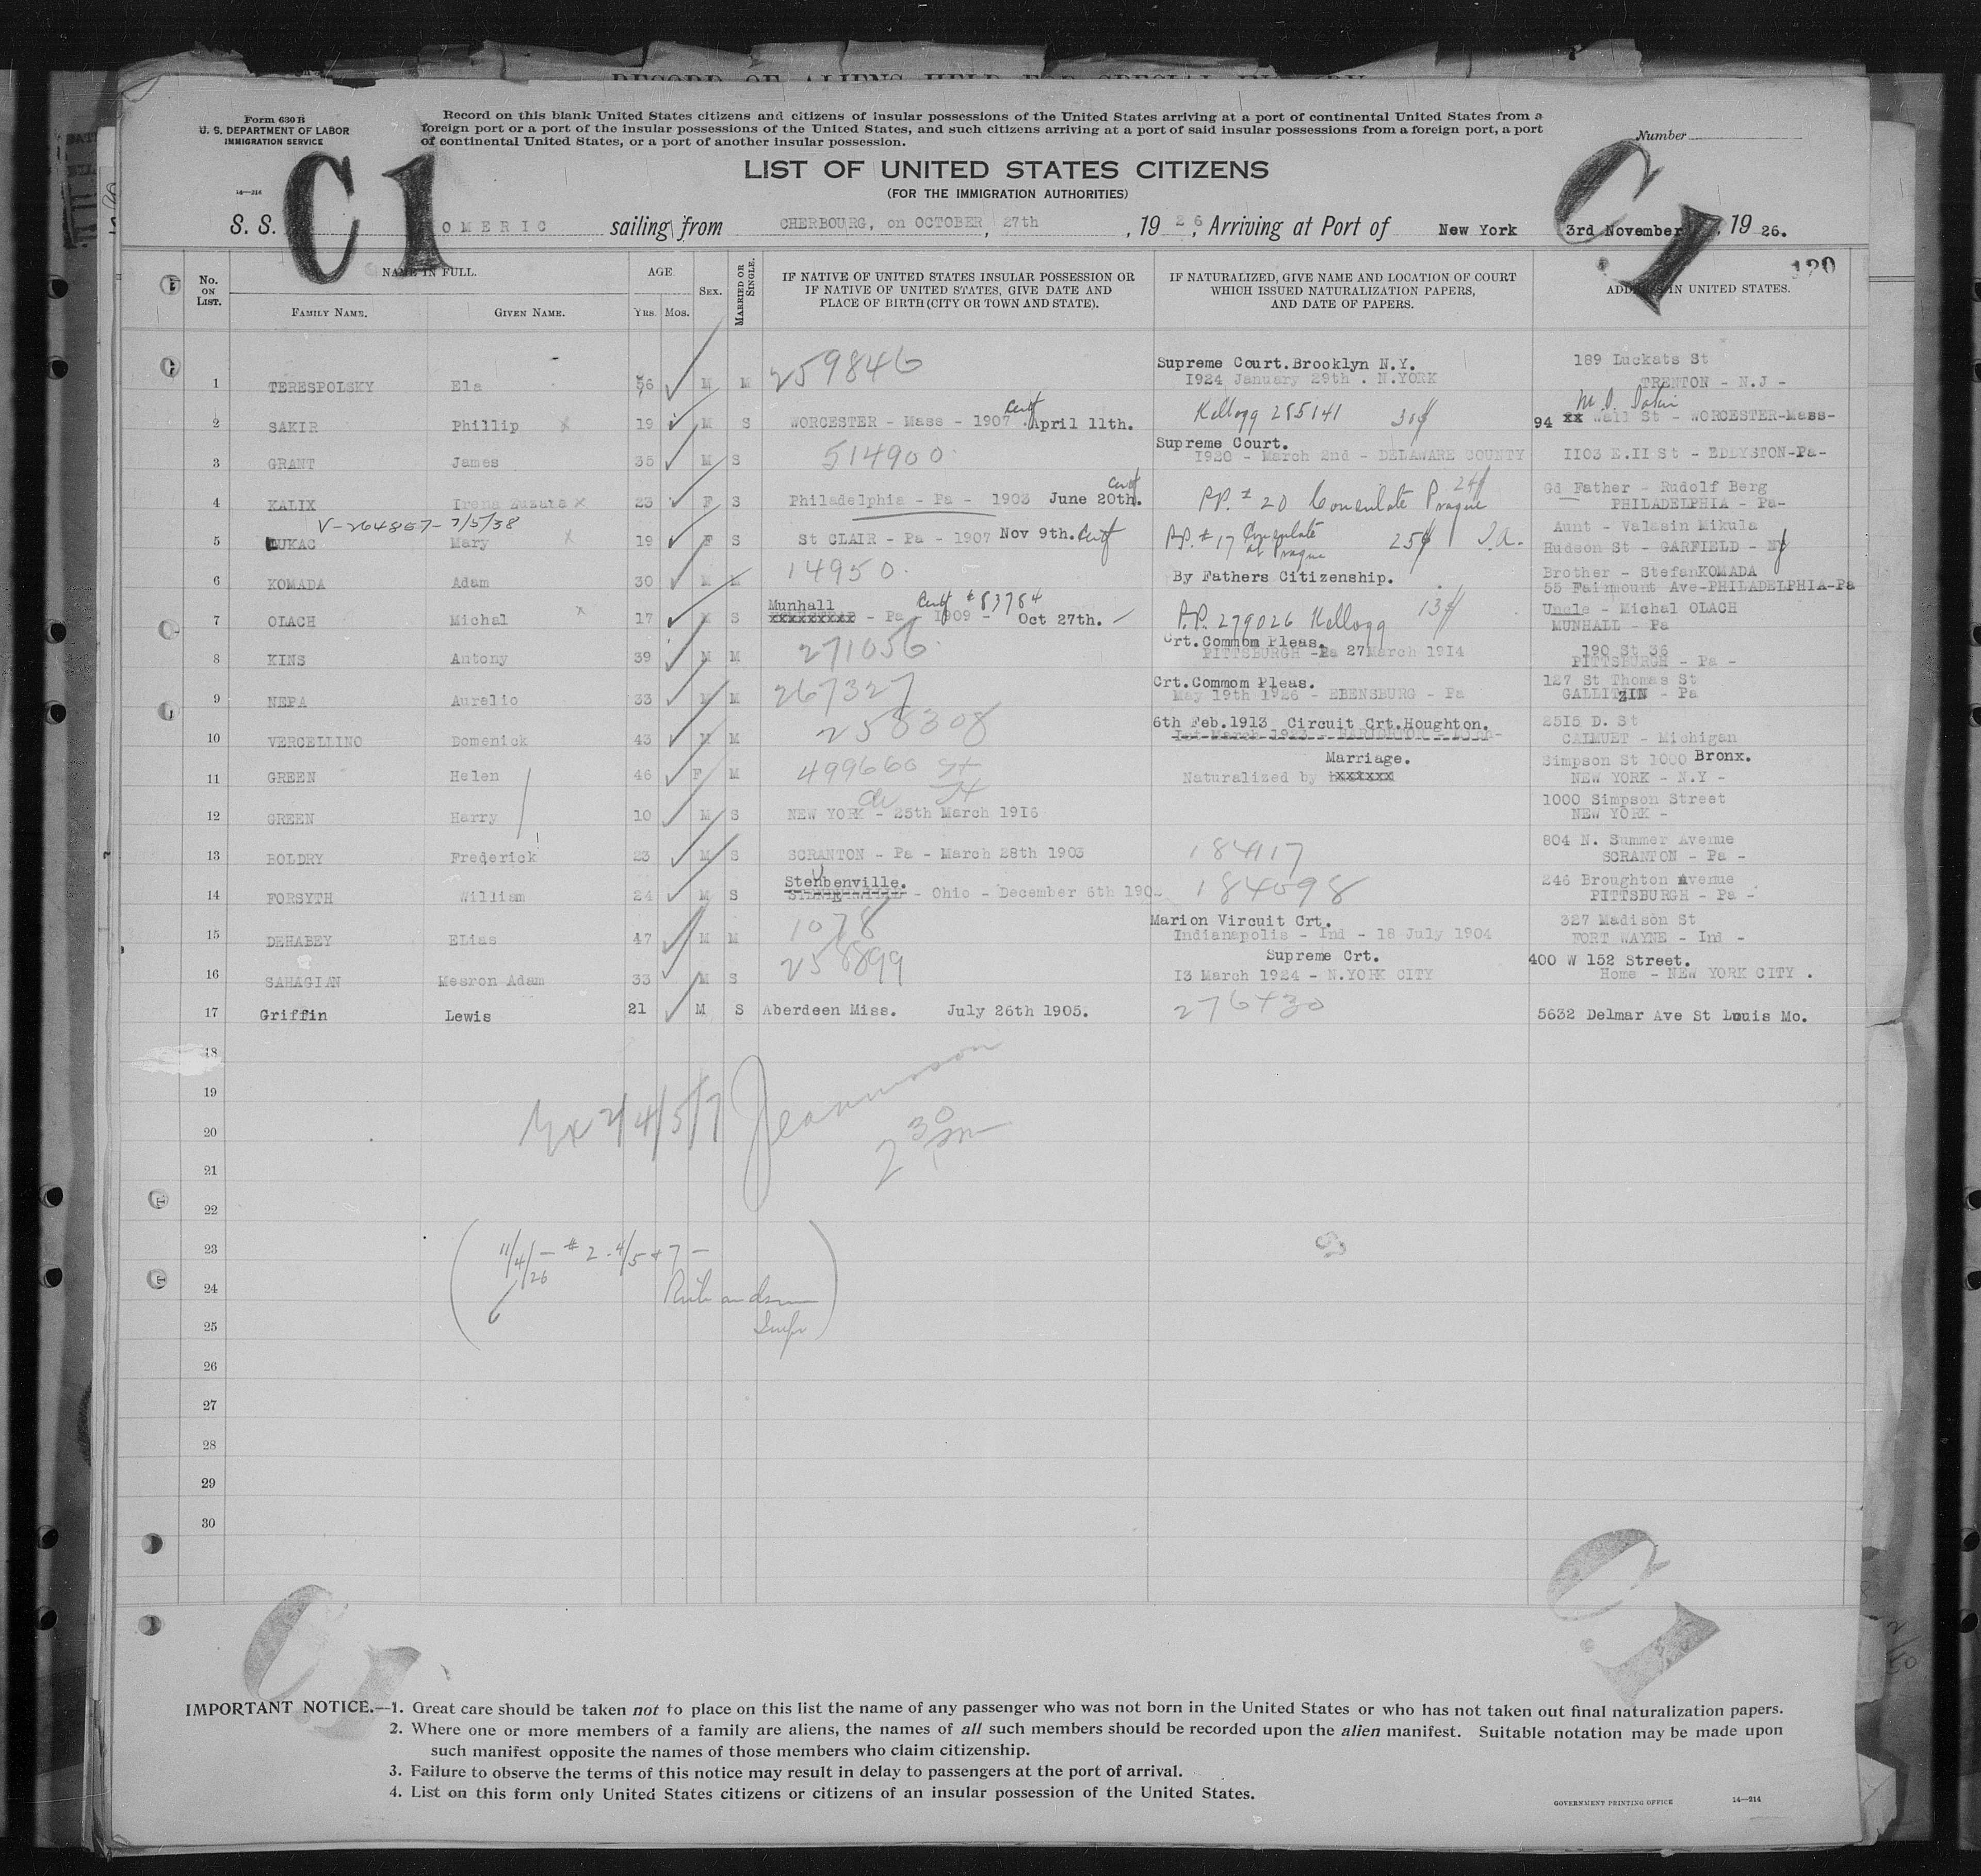 RECORD OF ALIENS HELD FOR SPECIAL INQUIRY
Form 630 B
U. S. DEPARTMENT OF LABOR
IMMIGRATION SERVICE
14—214
Record on this blank United States citizens and citizens of insular possessions of the United States arriving at a port of continental United States from a
foreign port or a port of the insular possessions of the United States, and such citizens arriving at a port of said insular possessions from a foreign port, a port
of continental United States, or a port of another insular possession.
Number
C1
C.1
LIST OF UNITED STATES CITIZENS
(FOR THE IMMIGRATION AUTHORITIES)
S. S. OMERIC sailing from CHERBOURG, on OCTOBER, 27th, 1926, Arriving at Port of New York 3rd November, 1926.
120
No. ON LIST.
NAME IN FULL.
FAMILY NAME.
GIVEN NAME.
AGE.
YRS. MOS.
SEX.
MARRIED OR SINGLE.
IF NATIVE OF UNITED STATES INSULAR POSSESSION OR
IF NATIVE OF UNITED STATES, GIVE DATE AND
PLACE OF BIRTH (CITY OR TOWN AND STATE).
IF NATURALIZED, GIVE NAME AND LOCATION OF COURT
WHICH ISSUED NATURALIZATION PAPERS,
AND DATE OF PAPERS.
ADDRESS IN UNITED STATES.
Supreme Court.Brooklyn N.Y. 189 Luckats St
1 TERESPOLSKY Ela 56 M M 259846 I924 January 29th . N.YORK TRENTON - N.J -
2 SAKIR Phillip x 19 M S WORCESTER - Mass - 1907 Cert April 11th. Kellogg 255141 30¢ 94 xx Wall St - WORCESTER-Mass-
Supreme Court.
3 GRANT James 35 M S 514900 I920 - March 2nd - DELAWARE COUNTY II03 E.II St - EDDYSTON-Pa-
Gd Father - Rudolf Berg
4 KALIX Irena Zuzata x 23 F S Philadelphia - Pa - 1903 June 20th. Cert PP. # 20 Consulate Prague 24¢ PHILADELPHIA - Pa-
V-264857- 7/5/38
Aunt - Valasin Mikula
5 LUKAC Mary x 19 F S St CLAIR - Pa - 1907 Nov 9th. Cert PP. # 17 Consulate at Prague 25¢ Hudson St - GARFIELD - NJ
Brother - StefanKOMADA
6 KOMADA Adam 30 M M 14950 By Fathers Citizenship. 55 Fairmount Ave-PHILADELPHIA-Pa
Munhall Cert # 83784 Uncle - Michal OLACH
7 OLACH Michal x 17 M S xxxxxxxxx - Pa - 1909 - Oct 27th. P.P. 279026 Kellogg 13¢ MUNHALL - Pa
Crt.Commom Pleas. 190 St 36
8 KINS Antony 39 M M 271056 PITTSBURGH -Pa 27March 1914 PITTSBURGH - Pa -
Crt.Commom Pleas. 127 St Thomas St
9 NEPA Aurelio 33 M M 267327 May 19th 1926 - EBENSBURG - Pa GALLITZIN - Pa
6th Feb.1913 Circuit Crt.Houghton. 2515 D. St
10 VERCELLINO Domenick 43 M M 258308 1st March 1923 CALMUET - Michigan
Marriage. Simpson St 1000 Bronx.
11 GREEN Helen 46 F M 499660 Naturalized by xxxxxx NEW YORK - N.Y -
1000 Simpson Street
12 GREEN Harry 10 M S NEW YORK - 25th March 1916 NEW YORK -
804 N. Summer Avenue
13 BOLDRY Frederick 23 M S SCRANTON - Pa - March 28th 1903 184117 SCRANTON - Pa -
Steubenville. 246 Broughton Avenue
14 FORSYTH William 24 M S - Ohio - December 6th 190 184098 PITTSBURGH - Pa -
Marion Vircuit Crt. 327 Madison St
15 DEHABEY ELias 47 M M 1078 Indianapolis - Ind - 18 July 1904 FORT WAYNE - Ind -
Supreme Crt. 400 W 152 Street.
16 SAHAGIAN Mesron Adam 33 M S 258899 I3 March 1924 - N.YORK CITY Home - NEW YORK CITY .
17 Griffin Lewis 21 M S Aberdeen Miss. July 26th 1905. 276430 5632 Delmar Ave St Louis Mo.
18
19
20 Ex 2/4/5/7 2 30 pm
21
22
23 11/4/26 - # 2 - 4/5 + 7 -
24 Richardson
25 Insp
26
27
28
29
30
C.1
C.1
IMPORTANT NOTICE.—1. Great care should be taken not to place on this list the name of any passenger who was not born in the United States or who has not taken out final naturalization papers.
2. Where one or more members of a family are aliens, the names of all such members should be recorded upon the alien manifest. Suitable notation may be made upon
such manifest opposite the names of those members who claim citizenship.
3. Failure to observe the terms of this notice may result in delay to passengers at the port of arrival.
4. List on this form only United States citizens or citizens of an insular possession of the United States.
GOVERNMENT PRINTING OFFICE 14—214